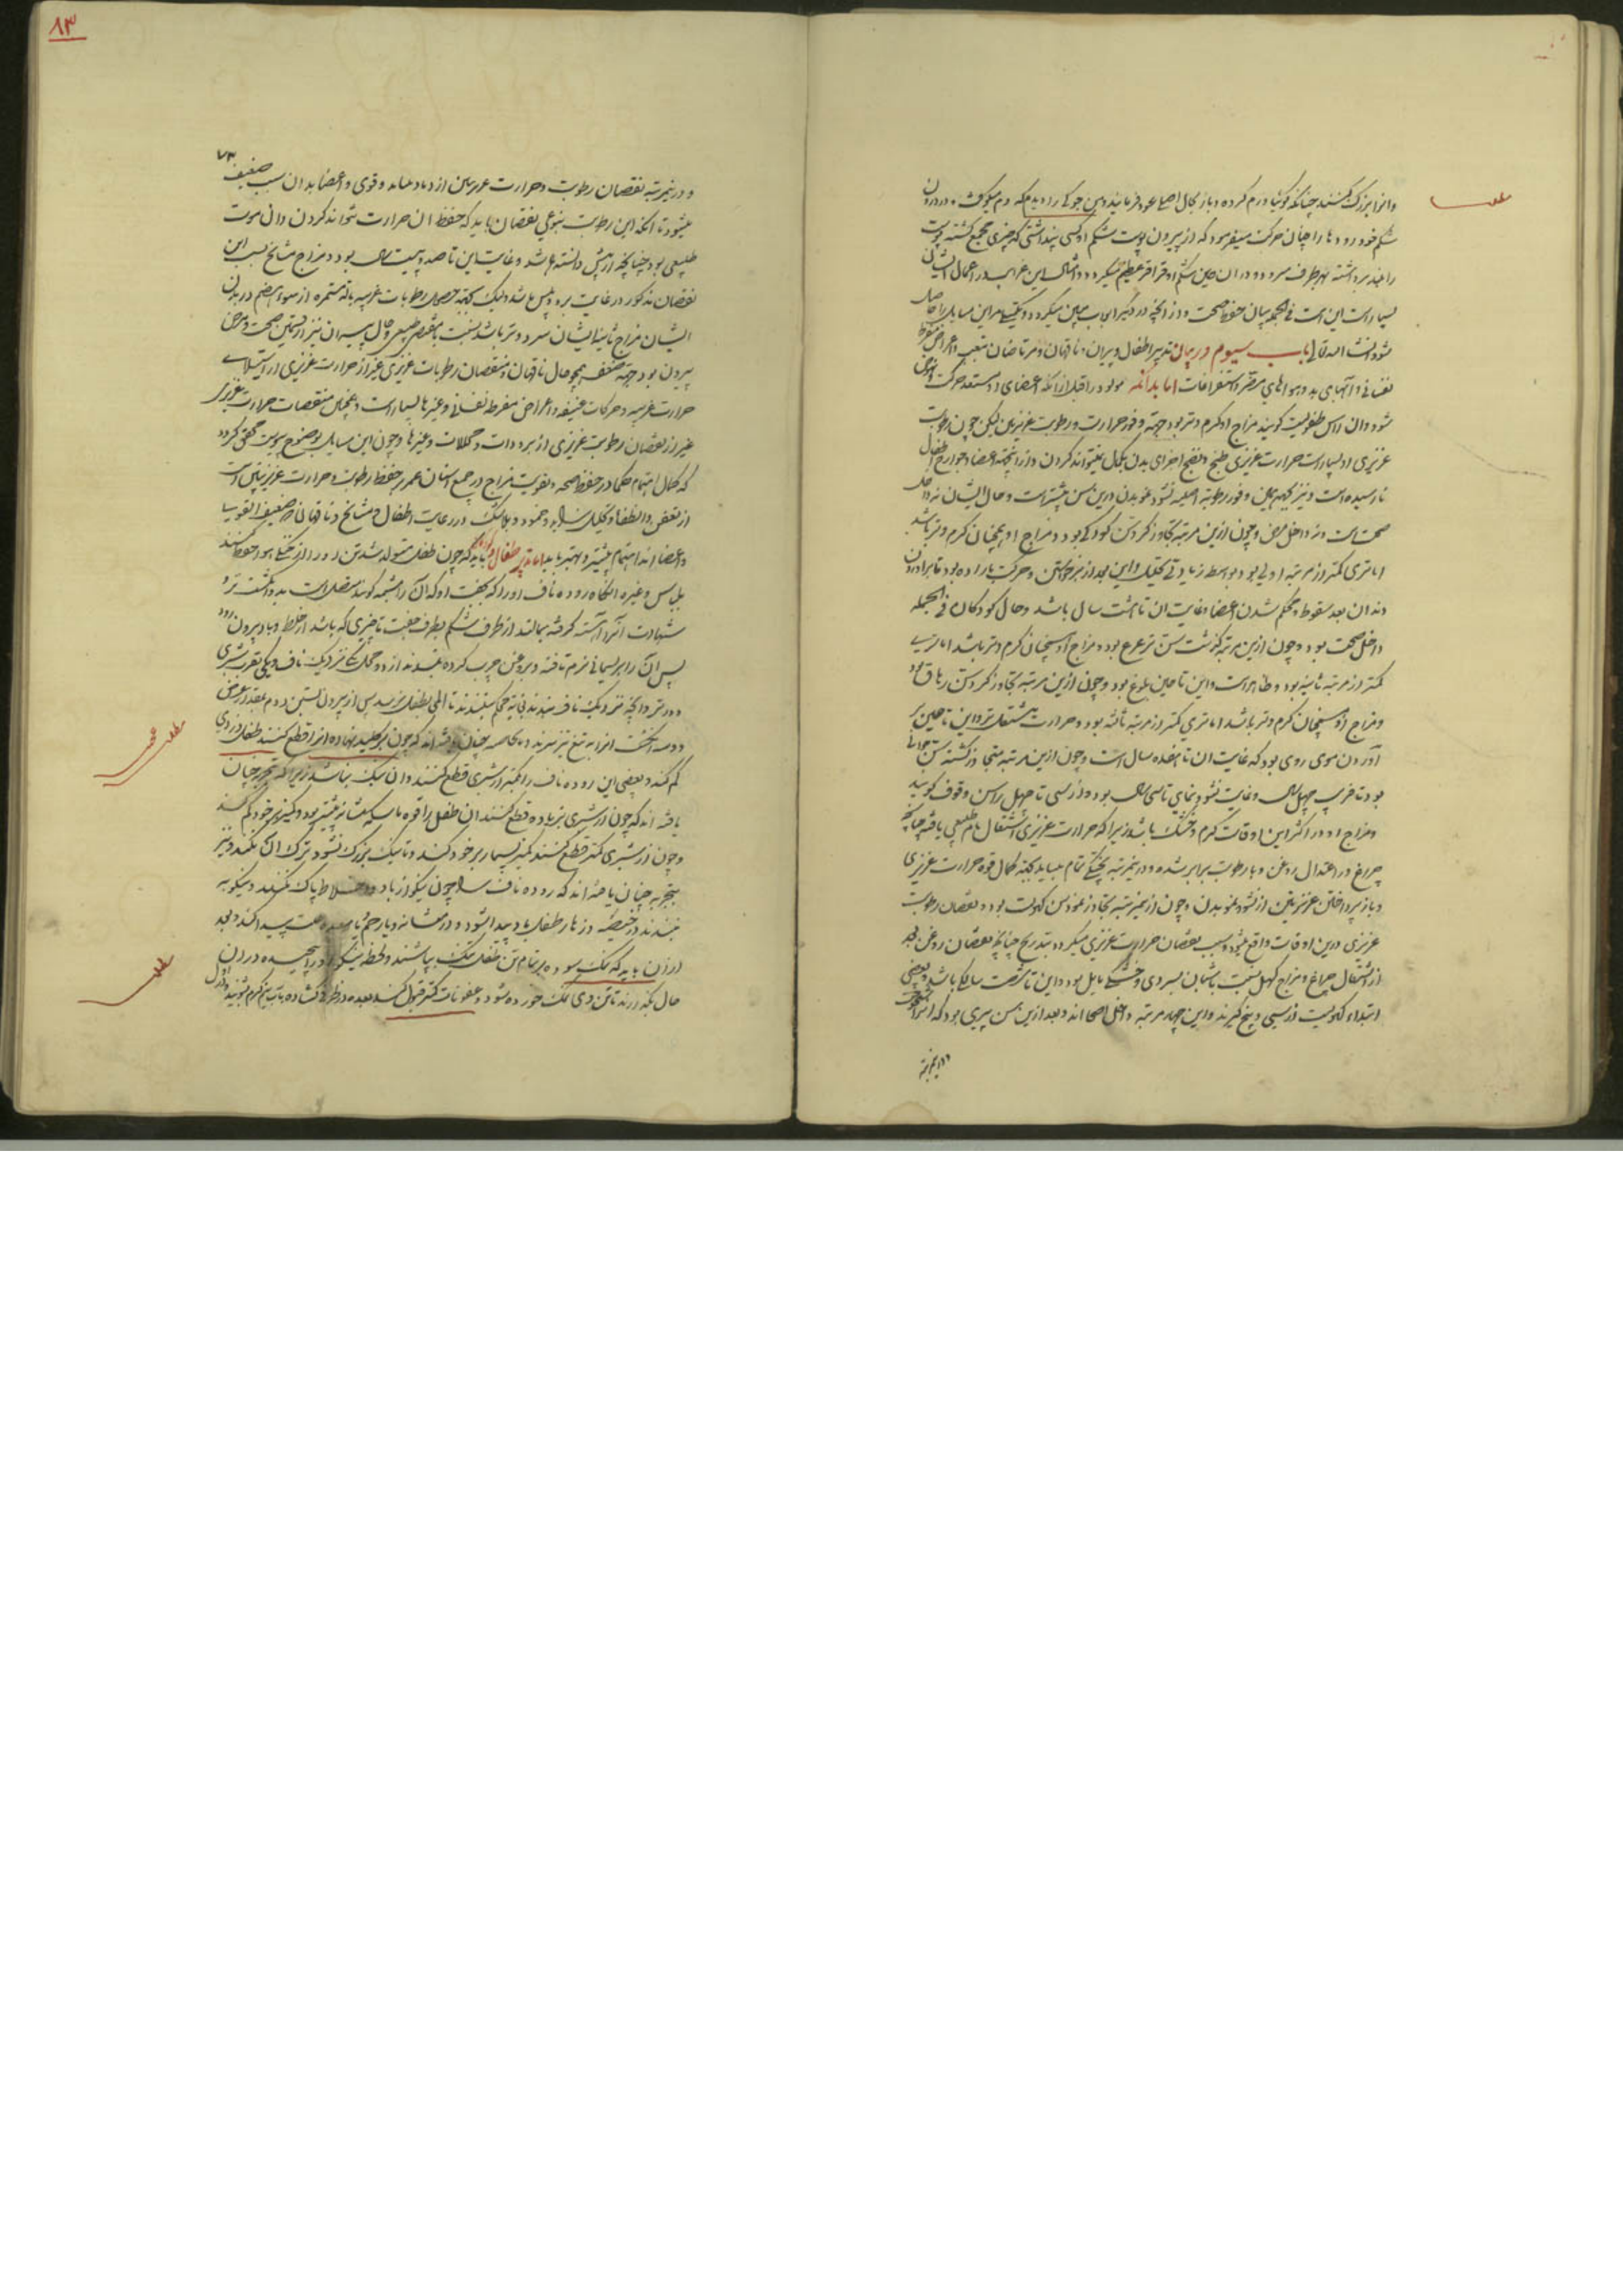 وانرا بزرک کنند چنانکه کوئیا ورم کرده و باز بحال اصلی عود فرمایند و من جوکی را دیدم که دم میکشید و در درون
شکم خود رودها را چنان حرکت میفرمود که از بیرون پوست شکم او کسی پنداشتی که چیزی مجتمع کشته پوست
را بلند برداشته بهر طرف میرود و در ان حین شکم او قراقر عظیم میکرد و امثال این غرایب در اعمال ایشان
بسیار است این است فی الجمله بیان حفظ صحت و از انچه در دیگر ابواب مبین میکردد و یکیک مر این مسایل را حاصل
شود انشا الله تعالی باب سیوم در بیان تدبیر اطفال و پیران و ناقهان و مرتاضان بتعب و اعراض مفرط
نفسانی و آبهای بد و هواهای مضر و استفراغات اما بدانکه مولود را قبل از انکه اعضای او مستعد حرکت و نهوض
شود و ان راس طفولیت کویند مزاج او کرم و تر بود جهة وفور حرارت و رطوبت غریزیین لیکن چون رطوبت
غریزی او بسیار است حرارت غریزی طبخ و نضج اجزای بدن بکمال نمیتواند کردن و از انجهة اعضا و جوارح اطفال
نارسیده است و نیز جهة همین وفور رطوبة اصلیه نشو و نمو بدن درین سن بیشتر است و حال ایشان نه داخل
صحت است و نه داخل مرض و چون ازین مرتبه تجاوز کرد سن کودکی بود و مزاج او همچنان کرم و تر باشد
اما تری کمتر از مرتبه اولی بود بواسطه زیادتی تحلیل و این بعد از برخواستن و حرکت باراده بود تا برآوردن
دندان بعد سقوط و محکم شدن اعضا و غایت ان تا هشت سال باشد و حال کودکان فی الجمله
داخل صحت بود و چون ازین مرتبه کذشت سن ترعرع بود و مزاج او همچنان کرم و تر باشد اما تری
کمتر از مرتبه ثانیه بود و ظاهر است و این تا حین بلوغ بود و چون ازین مرتبه تجاوز کرد سن رهاق بود
و مزاج او همچنان کرم و تر باشد اما تری کمتر از مرتبه ثالثه بود و حرارت مشتعلتر و این تا حین بر
آوردن موی روی بود که غایت ان تا هفده سال است و چون ازین مرتبه متجاوز کشته سن جوانی
بود تا قریب چهل سال و غایت نشو و نمای تا سی سال بود و از سی تا چهل را سن وقوف کویند
و مزاج او در اکثر این اوقات کرم و خشک باشد زیرا که حرارت غریزی اشتعال تام طبیعی یافته چنانچه
چراغ در اعتدال روغن و با رطوبت برابر شده و درینمرتبه پختکی تمام میباید بجهة کمال قوة حرارت غریزی
و باز پرداختن غریزیتین از نشو و نمو بدن و چون ازینمرتبه تجاوز نمود سن کهولت بود و نقصان رطوبت
غریزی درین اوقات واقع میشود و بسبب نقصان حرارت غریزی میکردد بتدریج چنانچه نقصان روغن بعد
از اشتعال چراغ و مزاج کهل نسبت بشبان بسردی و خشکی مایل بود و این تا شصت سالکی باشد و بعضی
ابتداء کهولیت از سی و پنج کیرند و این چهار مرتبه داخل اصحا اند و بعد ازین سن پیری بود که انرا شیخوخت
درینمرتبه
مطلب
۸۳
۷۳
و درینمرتبه نقصان رطوبت و حرارت غریزیین ازدیاد میباید و قوی و اعضا بدان سبب ضعیف
میشود تا انکه این رطوبت بنوعی نقصان یابد که حفظ ان حرارت نتواند کردن و ان موت
طبیعی بود چنانچه از پیش دانسته باشد و غایت این تا صد و بیست سال بود و مزاج مشایخ بسبب این
نقصان مذکور در غایت برد و یبس باشد لیک بجهة حصول رطوبات غریبه بالة مستمره از سوء هضم در بدن
ایشان مزاج ثانیا ایشان سرد و تر باشد نسبت بمقتضی طبیعی و حال پیران نیز از قسمین صحت و مرض
بیرون بود جهة ضعف همچو حال ناقهان و منقصان رطوبات غریزی غیر از حرارت غریزی از استیلاء
حرارت غریبه و حرکات عنیفه و اعراض مفرطه نفسانی و غیرها بسیار است و همچنین منقصات حرارت غریزی
غیر از نقصان رطوبت غریزی از برودات و محللات و غیرها و چون این مسایل بوضوح پیوست محقق کردد
که کمال اهتمام حکما در حفظ صحة و تقویت مزاج در جمیع اسنان عمر بر حفظ رطوبت و حرارت غریزیین است
از نقص و انطفا و تحلیل و خمود و بلاشک در رعایت اطفال و مشایخ و ناقهان که ضعیف القویا
و اعضا اند اهتمام بیشتر و بهتر باید اما تدبیر طفلان باید که چون طفل متولد شد تن او را از خنکی هوا حفظ کنند
بلباس و غیره انکاه روده ناف او را که بجفت او که آن را مشیمه کویند متصل است بدو انکشت نر و
شهادت آنرا آهسته کرفته بمالند از طرف شکم بطرف جفت تا چیزی که باشد از خلط و باد بیرون رود
پس آن را بریسمانی نرم تافته و بروغن چرب کرده ببندند از دو محل یکی نزدیک ناف و یکی بقرب بشبری
دورتر و انچه نزدیک ناف بندند نه بغایة محکم ببندند تا المی بطفل نرسد پس از بیرون بستن دوم بمقدار عرض
دو سه انکشت انرا به تیغ تیز ببرند و بخاصه چنان یافته اند که چون بر کلید نهاده انرا قطع کنند طفل دزدی
کم کند و بعضی این روده ناف را کمتر از شبری قطع کنند و ان نیک نباشد زیرا که تجربه چنان
یافته اند که چون از شبری زیاده قطع کنند ان طفل را قوة ماسکه مثانه بیشتر بود و کمیز بر خود کم کند
و چون از شبری کمتر قطع کنند کمیز بسیار بر خود کند و تا نیک بزرک نشود ترک ان نکند و نیز
بتجربه چنان یافته اند که روده ناف را چون نیکو از باد و اخلاط پاک نکنند و نیکو نه
ببندند
لرزان باید که نمک سوده بر تمام تن طفل نمک بپاشند و لحظه نیکو در پیچیده در ان
حال نکه دارند تا تن وی نمک خورده شود و عفونات کمتر قبول کند بعده در ظرفی کشاده بآب نیم کرم بشویند
مطلب
مطلب